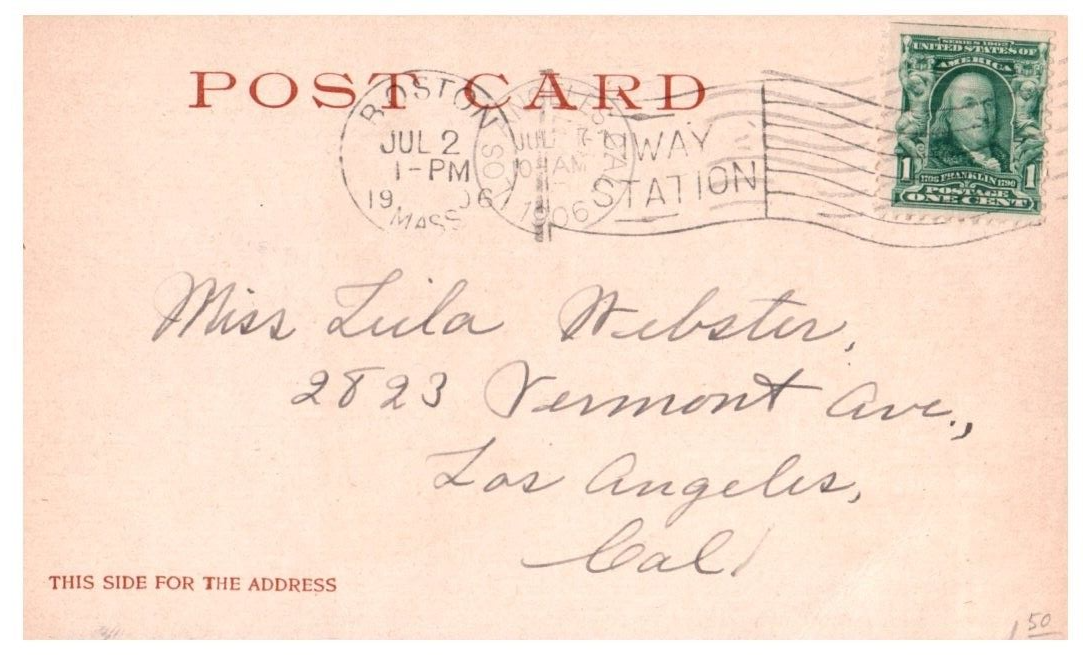 POST CARD
BOSTON
JUL 2
1-PM
19 06
MASS
LOS ANGELES CAL
JUL 7
AM
1906
WAY
STATION
SERIES 1902
UNITED STATES OF
AMERICA
1 1
1706 FRANKLIN 1790
POSTAGE
ONE CENT
Miss Lula Webster,
2823 Vermont Ave.,
Los Angeles,
Cal
THIS SIDE FOR THE ADDRESS
1 50